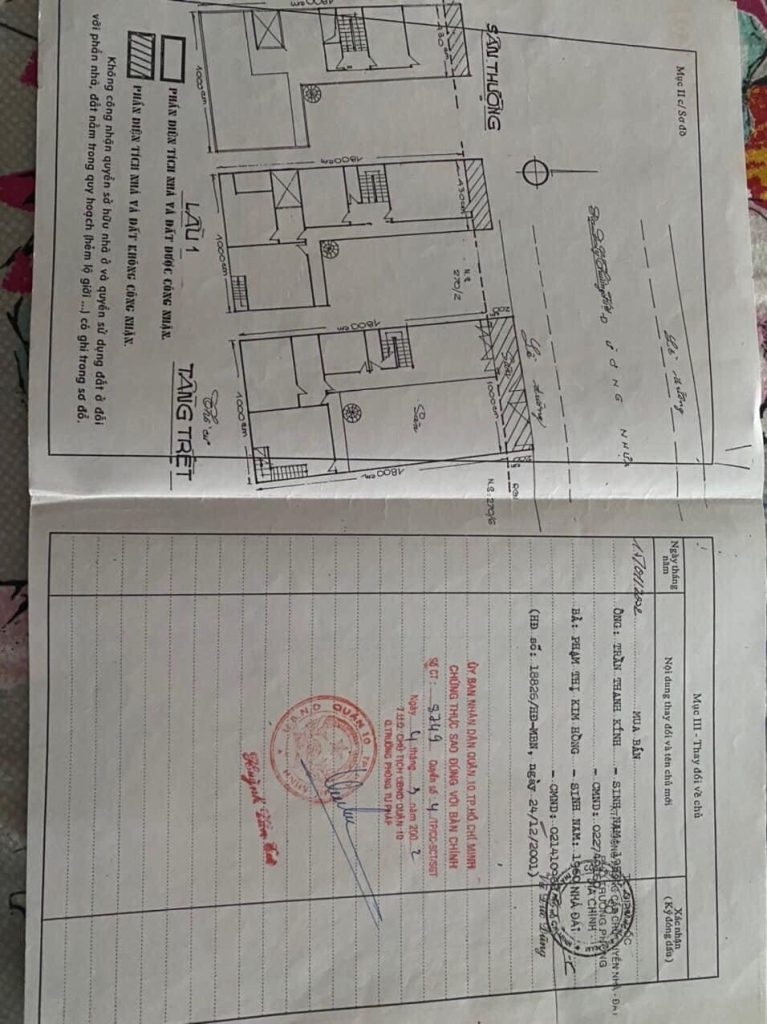 Mục II c/ Sơ đồ
SÂN THƯỢNG
1800 cm
1000 cm
LẦU 1
1800 cm
1000 cm
N.S
270/2
TẦNG TRỆT
1800 cm
1000 cm
Sân
1000 cm
1800 cm
N.S: 270/6
Lề đường
ĐƯỜNG NHỰA
Lề đường
PHẦN DIỆN TÍCH NHÀ VÀ ĐẤT ĐƯỢC CÔNG NHẬN.
PHẦN DIỆN TÍCH NHÀ VÀ ĐẤT KHÔNG CÔNG NHẬN.
Không công nhận quyền sở hữu nhà ở và quyền sử dụng đất ở đối
với phần nhà, đất nằm trong quy hoạch (hẻm lộ giới ...) có ghi trong sơ đồ.
Mục III - Thay đổi về chủ
Ngày tháng
năm
Nội dung thay đổi và tên chủ mới
Xác nhận
(Ký đóng dấu)
MUA BÁN
ÔNG: TRẦN THANH KÍNH - SINH NĂM:
- CMND:
BÀ: PHẠM THỊ KIM HỒNG - SINH NĂM: 1960
- CMND:
(HĐ số: 18826/HĐ-MBN, ngày 24/12/2001)
ỦY BAN NHÂN DÂN QUẬN 10 TP.HỒ CHÍ MINH
CHỨNG THỰC SAO ĐÚNG VỚI BẢN CHÍNH
Số CT: 8749 Quyển số 4 /TPCC-SCT/SGT
Ngày 4 tháng 5 năm 2002
T.UQ. CHỦ TỊCH UBND QUẬN 10
Q.TRƯỞNG PHÒNG TƯ PHÁP
U.B.N.D QUẬN 10